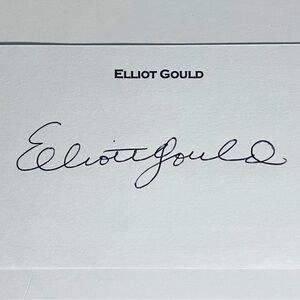 Elliot Gould
Elliott Gould